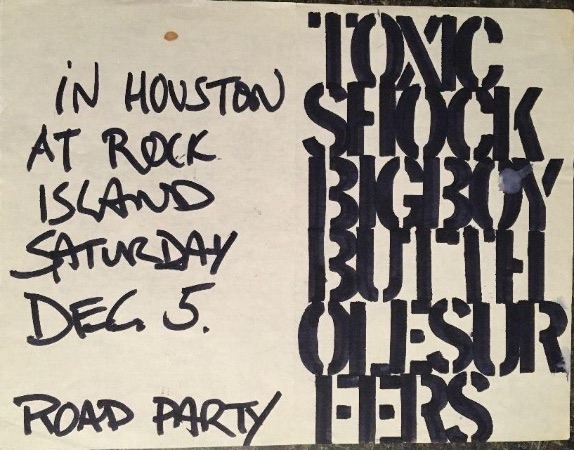 iN HOUSTON
AT ROCK
ISLAND
SATURDAY
DEC. 5.
ROAD PARTY
TOXIC
SHOCK
BIGBOY
BUTTH
OLESUR
FERS